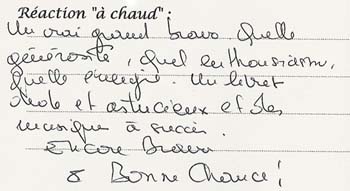 Réaction "à chaud" :
Un vrai grand bravo. Quelle
générosité, quel enthousiasme,
quelle énergie. Un livret
drôle et astucieux et des
musiques à succès.
Encore Bravo
& Bonne Chance !